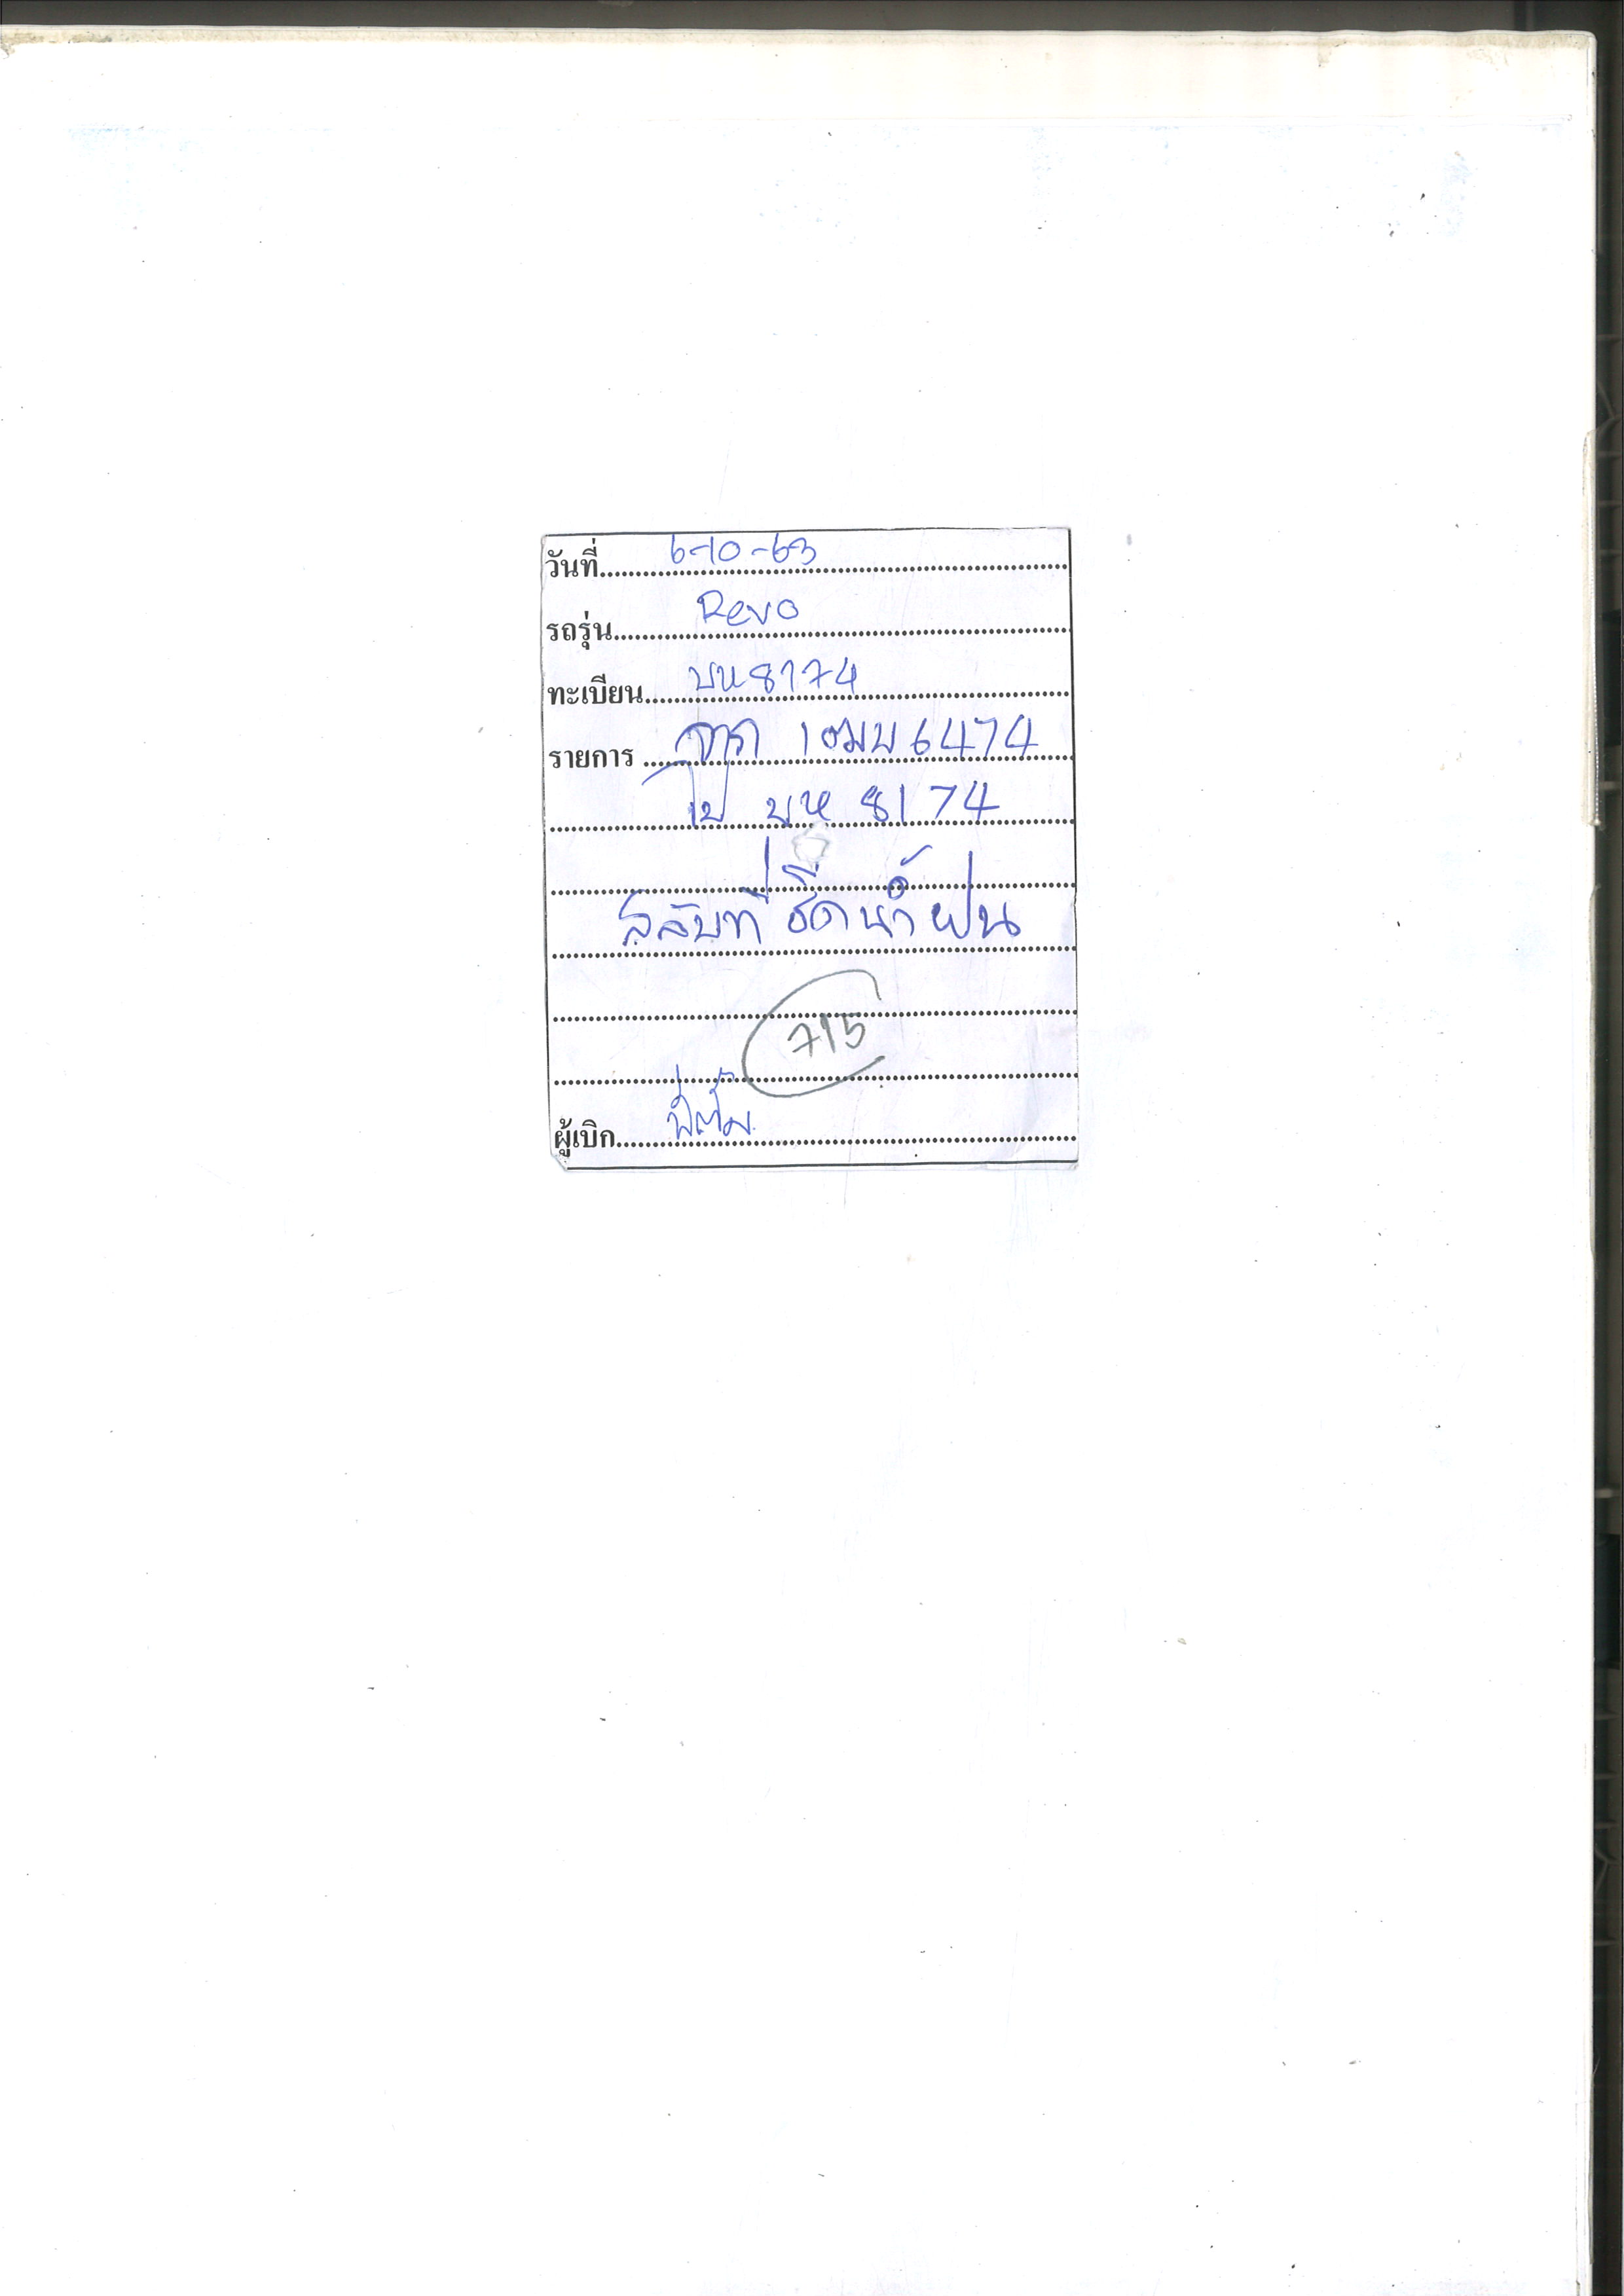 วันที่ 6-10-63
รถรุ่น Revo
ทะเบียน บห 8174
รายการ จาก 1ฒบ 6474
ไป บห 8174
สลับที่ฉีดน้ำฝน
715
ผู้เบิก พี่ตั้ม